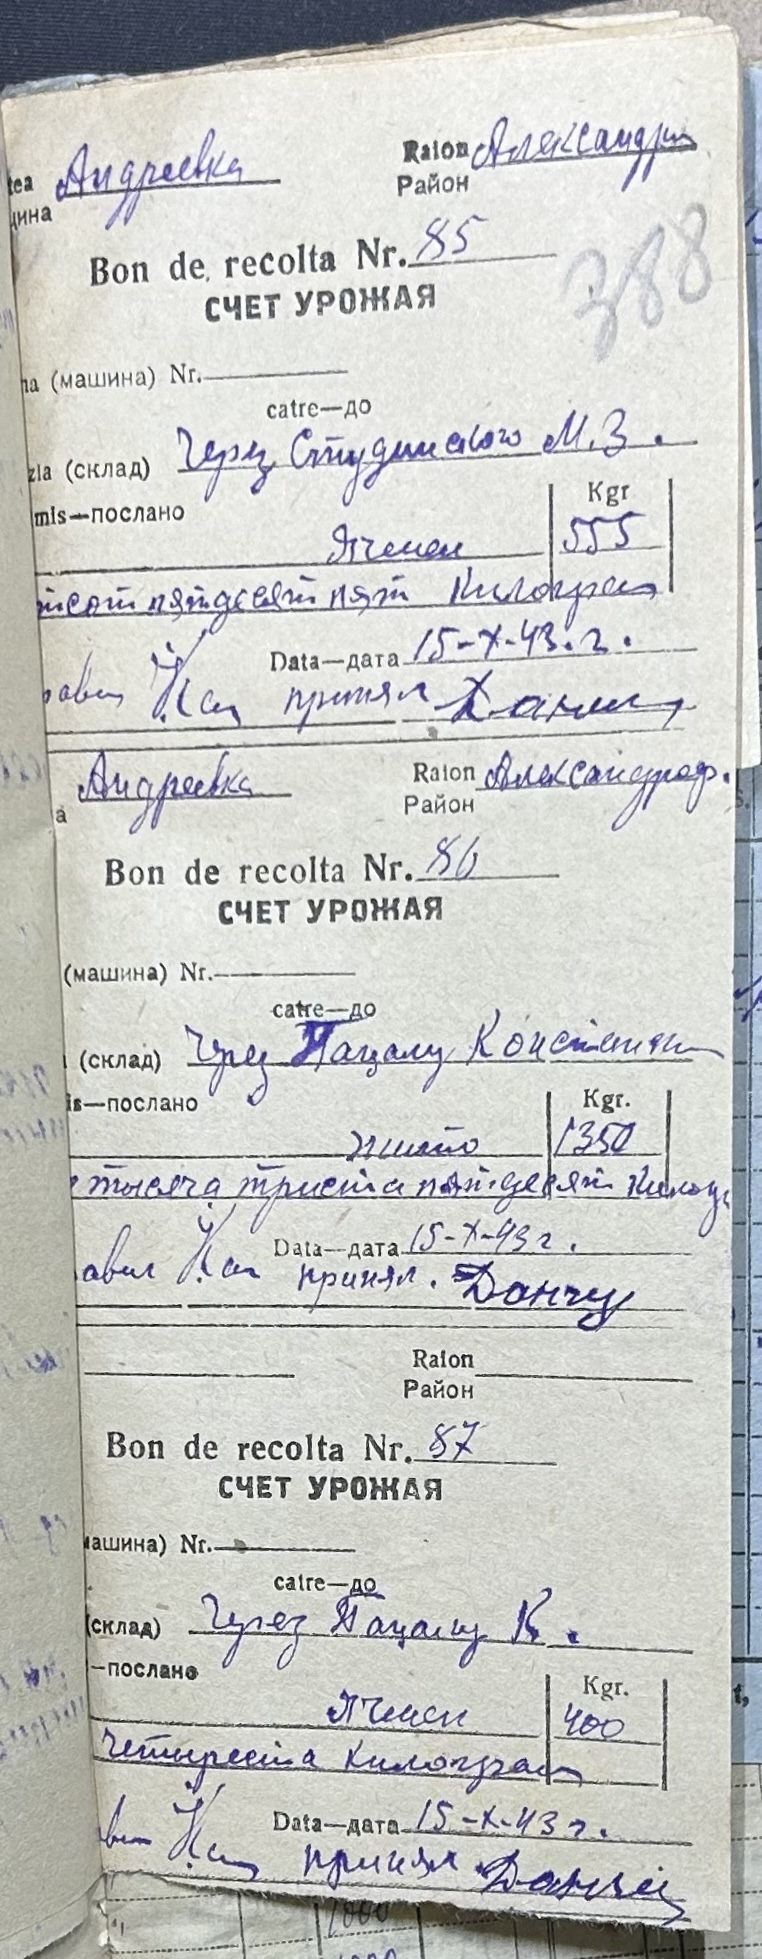 tea Андреевка Raion Александр
щина Район
Bon de recolta Nr. 85
СЧЕТ УРОЖАЯ
388
na (машина) Nr.
catre—до
zia (склад) Через Студинского М.З.
mis—послано Kgr
Ячмен 555
тсот пятдесят пят Килограм
Data—дата 15-X-43.г.
равил принял
Андреевка Raion Александроф.
а Район
Bon de recolta Nr. 86
СЧЕТ УРОЖАЯ
(машина) Nr.
catre—до
(склад) Через Пацалу Констянт
is—послано Kgr.
жито 1350
тысяча триста пятдесят Килогр
Data—дата 15-X-43г.
авил принял. Данчу
Raion
Район
Bon de recolta Nr. 87
СЧЕТ УРОЖАЯ
машина) Nr.
catre—до
(склад) Через Пацалу К.
—послано Kgr.
Ячмен 400
Четыреста килограм
Data—дата 15-X-43г.
вил принял
1000